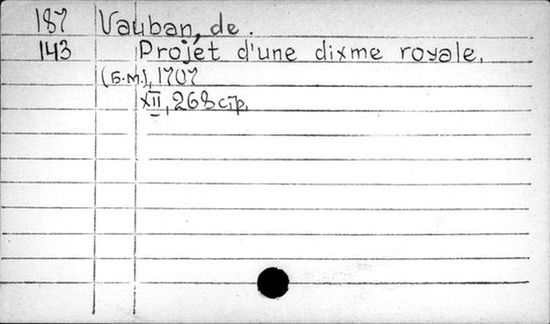 187 Vauban, de.
143 Projet d'une dixme royale.
(Б.м.), 1707
XII, 268 стр.